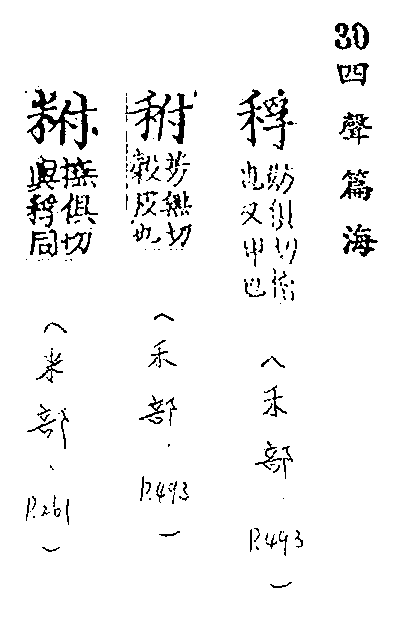 30四聲篇海
稃
妨俱切
也又甲也
(禾部.P.493)
䄮
步無切
穀皮也
(禾部.P.493)
撫俱切
與稃同
(米部.P.261)